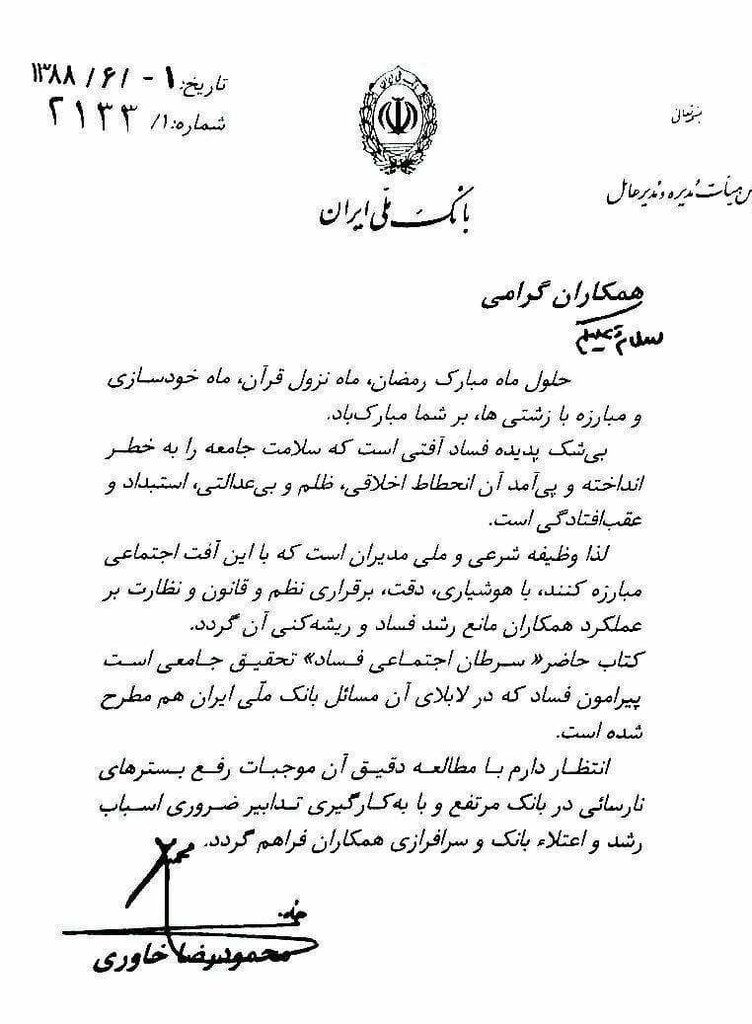 بسمه‌تعالی
تاریخ: ۱۳۸۸/۶/-۱
شماره: ۱/ ۲۱۳۳
هیأت مدیره و مدیر عامل
بانک ملی ایران
همکاران گرامی
سلام علیکم
حلول ماه مبارک رمضان، ماه نزول قرآن، ماه خودسازی
و مبارزه با زشتی ها، بر شما مبارک‌باد.
بی‌شک پدیده فساد آفتی است که سلامت جامعه را به خطر
انداخته و پی‌آمد آن انحطاط اخلاقی، ظلم و بی‌عدالتی، استبداد و
عقب‌افتادگی است.
لذا وظیفه شرعی و ملی مدیران است که با این آفت اجتماعی
مبارزه کنند، با هوشیاری، دقت، برقراری نظم و قانون و نظارت بر
عملکرد همکاران مانع رشد فساد و ریشه‌کنی آن گردد.
کتاب حاضر« سرطان اجتماعی فساد» تحقیق جامعی است
پیرامون فساد که در لابلای آن مسائل بانک ملّی ایران هم مطرح
شده است.
انتظار دارم با مطالعه دقیق آن موجبات رفع بسترهای
نارسائی در بانک مرتفع و با به‌کارگیری تدابیر ضروری اسباب
رشد و اعتلاء بانک و سرافرازی همکاران فراهم گردد.
محمودرضا خاوری